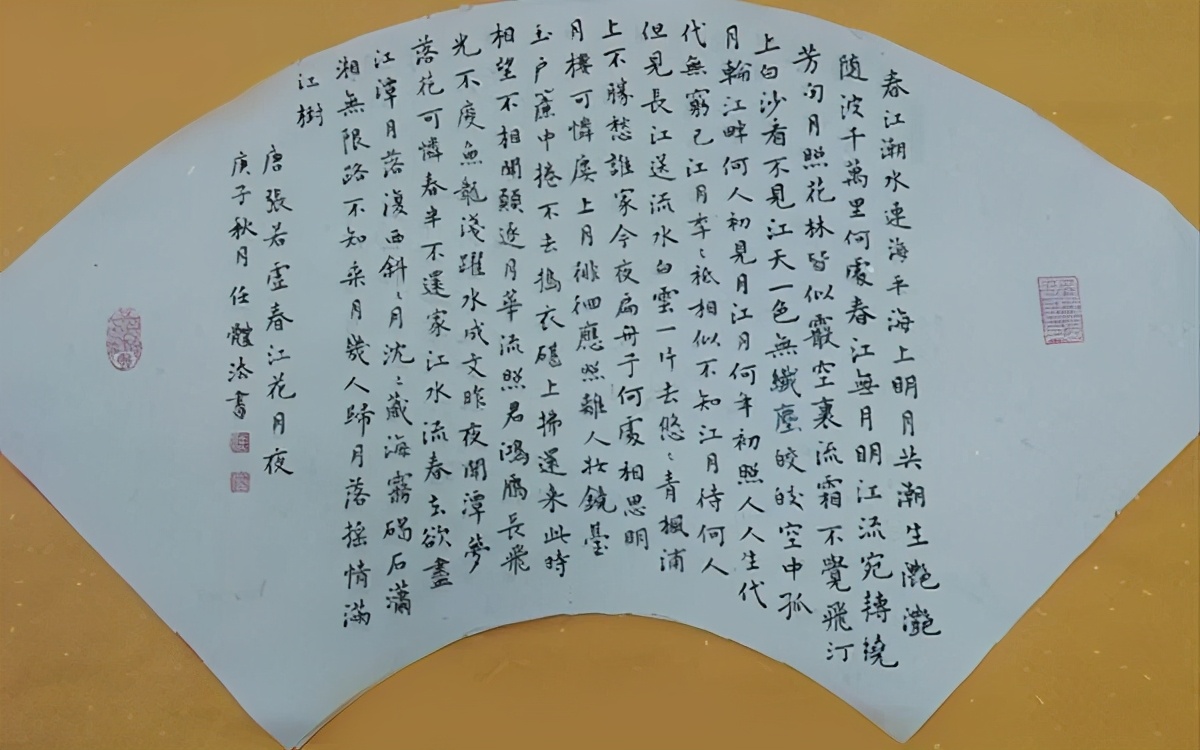 春江潮水連海平海上明月共潮生灔灔
隨波千萬里何處春江無月明江流宛轉繞
芳甸月照花林皆似霰空裏流霜不覺飛汀
上白沙看不見江天一色無纖塵皎皎空中孤
月輪江畔何人初見月江月何年初照人人生代
代無窮已江月年〻祗相似不知江月待何人
但見長江送流水白雲一片去悠〻青楓浦
上不勝愁誰家今夜扁舟子何處相思明
月樓可憐廔上月徘徊應照離人妝鏡臺
玉户簾中捲不去擣衣碪上拂還来此時
相望不相聞願逐月華流照君鴻鴈長飛
光不度魚龍潛躍水成文昨夜閒潭夢
落花可憐春半不還家江水流春去欲盡
江潭月落復西斜〻月沈〻藏海霧碣石瀟
湘無限路不知乘月幾人歸月落摇情滿
江樹
唐張若虚春江花月夜
庚子秋月任體書